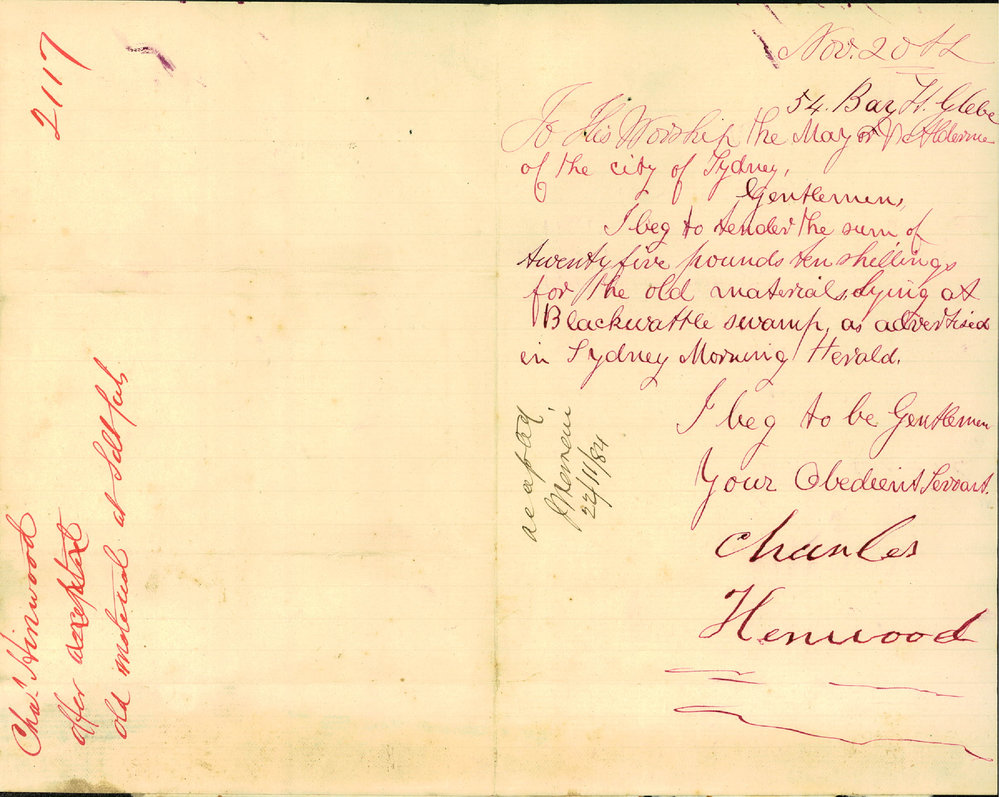 Nov. 20th
54. Bay St. Glebe
To His Worship the Mayor & Alderme
of the city of Sydney,
Gentlemen,
I beg to tender the sum of
twenty five pounds ten shellings
for the old materials, lying at
Blackwattle swamp, as advertised
in Sydney Morning Herald.
I beg to be Gentlemen
Your Obedient Servant.
Charles
Henwood
accepted
22/11/84
2117
Chas Hinwood
offer accepted
old material at